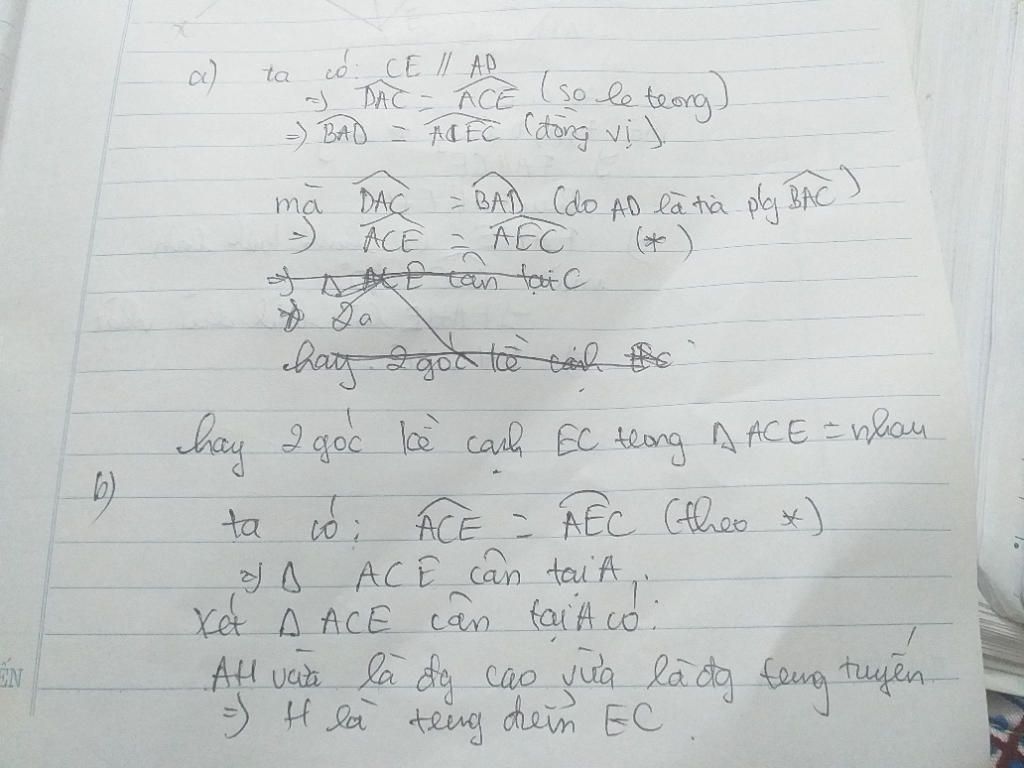 x
a) ta có: CE // AD
=> DAC = ACE (so le trong)
=> BAD = AEC (đồng vị).
mà DAC = BAD (do AD là tia p/g BAC)
=> ACE = AEC (*)
=> Δ ACE cân tại C
2a
hay 2 góc kề cạnh EC
hay 2 góc kề cạnh EC trong Δ ACE = nhau
b)
ta có: ACE = AEC (theo *)
=> Δ ACE cân tại A.
Xét Δ ACE cân tại A có:
ẾN
AH vừa là đg cao vừa là đg trung tuyến
=> H là trung điểm EC.